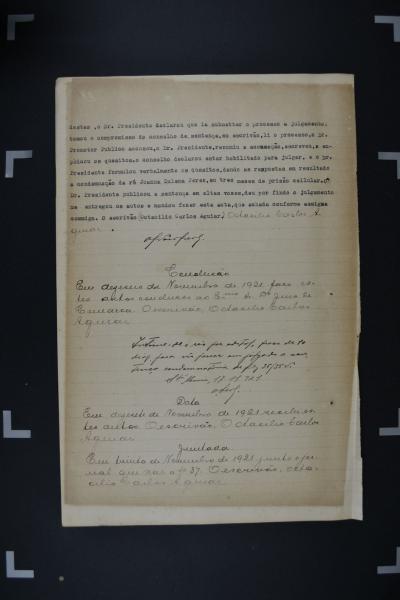 dentes, o Dr. Presidente declarou que ia submetter o processo a julgamento,
tomou o compromisso do conselho de sentença, eu escrivão, li o processo, o Dr.
Promotor Publico accusou, o Dr. Presidente, resumiu a accusação, escreveu, e ex-
plicou os quesitos, o conselho declarou estar habilitado para julgar, e o Dr.
Presidente formulou verbalmente os quesitos, dando as respostas em resultado
a condemnação da ré Joanna Culana Peres, em tres mezes de prisão cellular. O
Dr. Presidente publicou a sentença em altas vozes, deu por findo o julgamento
me entregou os autos e mandou fazer esta acta, que achada conforme assigna
commigo. O escrivão Octacilio Carlos Aguiar. Octacilio Carlos A
guiar.
Conclusão
Em dezesete de Novembro de 1921 faço es-
tes autos conclusos ao Exmo Sr. Dr. Juiz de
Comarca. O escrivão, Octacilio Carlos
Aguiar
17-11-921
Data
Em dezesete de Novembro de 1921 recebi es-
tes autos. O escrivão, Octacilio Carlos
Aguiar
Juntada
Em trinta de Novembro de 1921 junto o jor-
nal que vae a fls 37. O escrivão, Octa-
cilio Carlos Aguiar